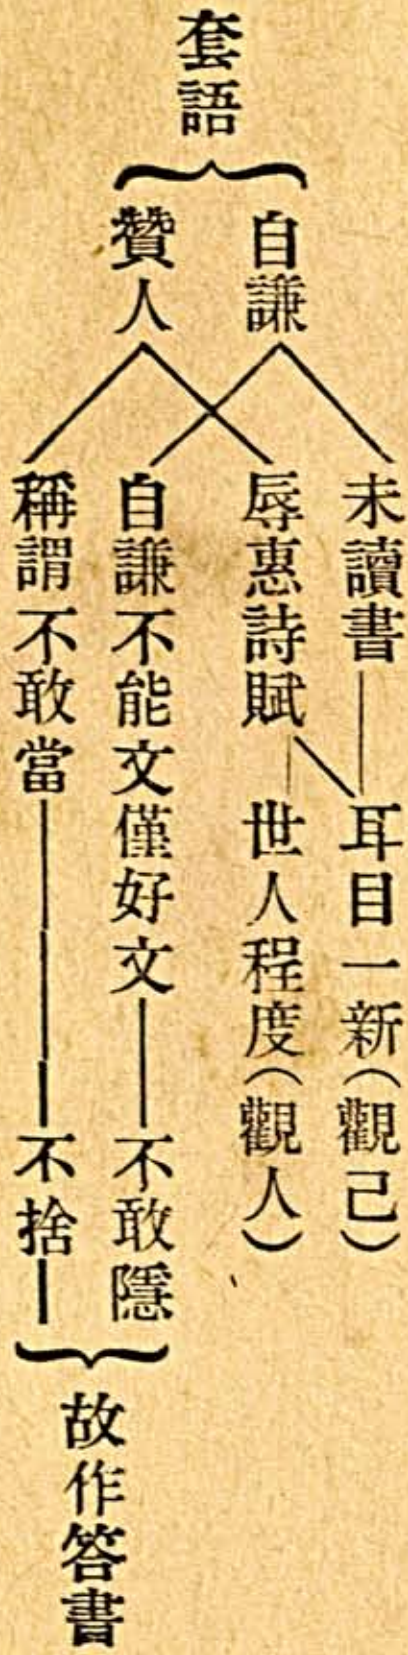 套語
自謙
贊人
未讀書
耳目一新(觀己)
辱惠詩賦
世人程度(觀人)
自謙不能文僅好文
不敢隱
稱謂不敢當
不捨
故作答書